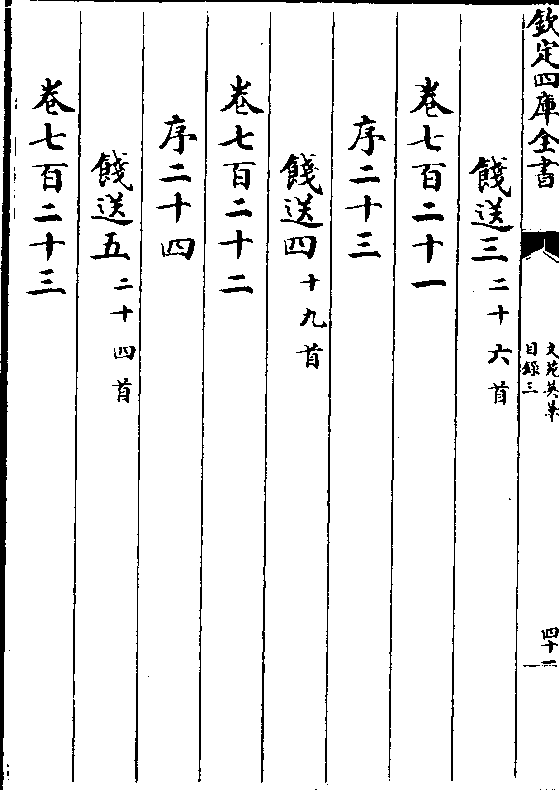 欽定四庫全書
文苑英華
目錄三
四十二
餞送三二十六首
卷七百二十一
序二十三
餞送四十九首
卷七百二十二
序二十四
餞送五二十四首
卷七百二十三